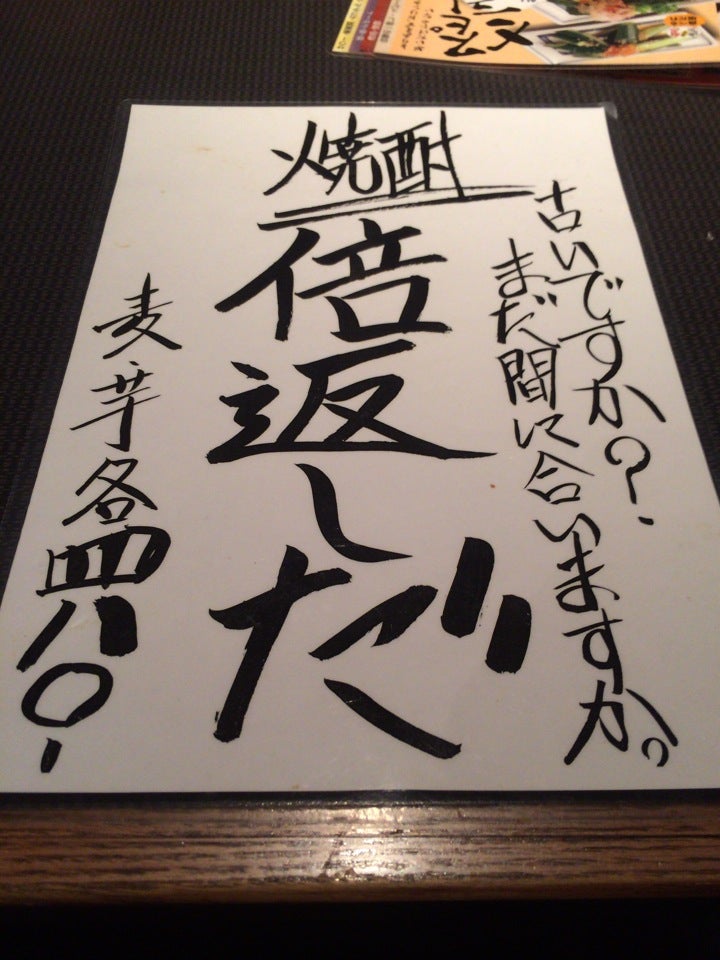 焼酎
古いですか？
まだ間に合いますか。
倍返しだ
麦・芋各四八〇-